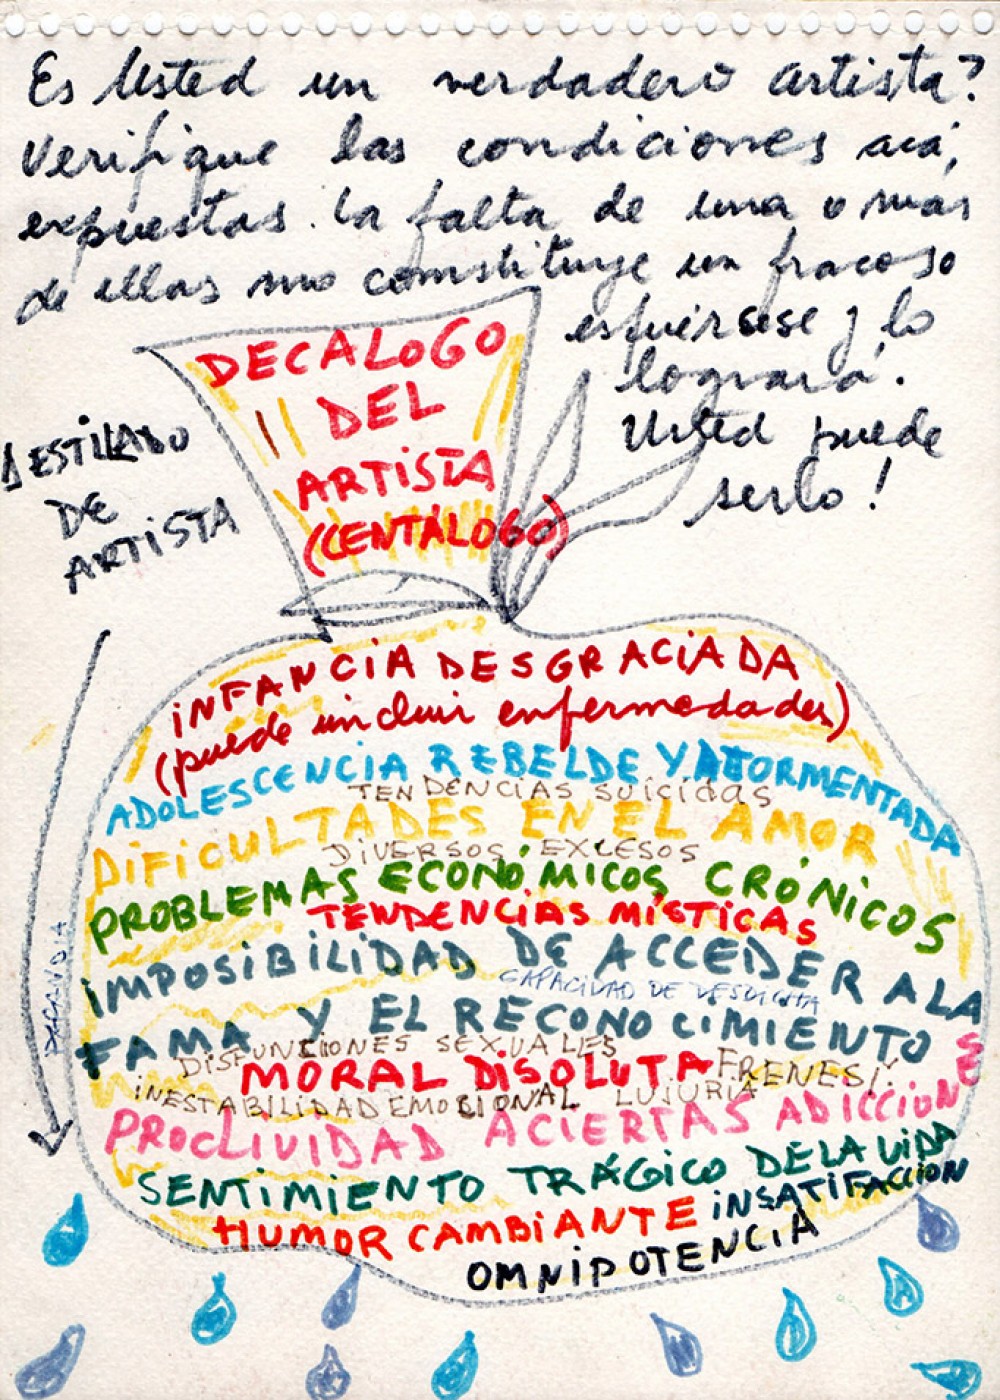 Es Usted un verdadero artista?
Verifique las condiciones acá,
expuestas. la falta de una o mas
de ellas no constituye un fracaso
esfuércese y lo
logrará.
Usted puede
serlo!
DECALOGO
DEL
ARTISTA
(CENTÁLOGO)
DESTILADO
DE
ARTISTA
iNFANCiA DESGRACiADA
(puede incluir enfermedades)
ADOLESCENCiA REBELDE Y ATORMENTADA
TENDENCiAS SUiCiDAS
DiFiCULTADES EN EL AMOR
DiVERSOS EXCESOS
PROBLEMAS ECONÓMiCOS CRÓNiCOS
TENDENCiAS MÍSTiCAS
iMPOSiBiLiDAD DE ACCEDER A LA
CAPACiDAD DE DESDICHA
FAMA Y EL RECONOCiMiENTO
DiSFUNCiONES SEXUALES
MORAL DiSOLUTA FRENESÍ
iNESTABiLiDAD EMOCiONAL LUJURiA
PROCLiViDAD A CiERTAS ADiCCiONES
SENTiMiENTO TRÁGiCO DE LA ViDA
HUMOR CAMBiANTE iNSATiFACCiON
OMNiPOTENCiA